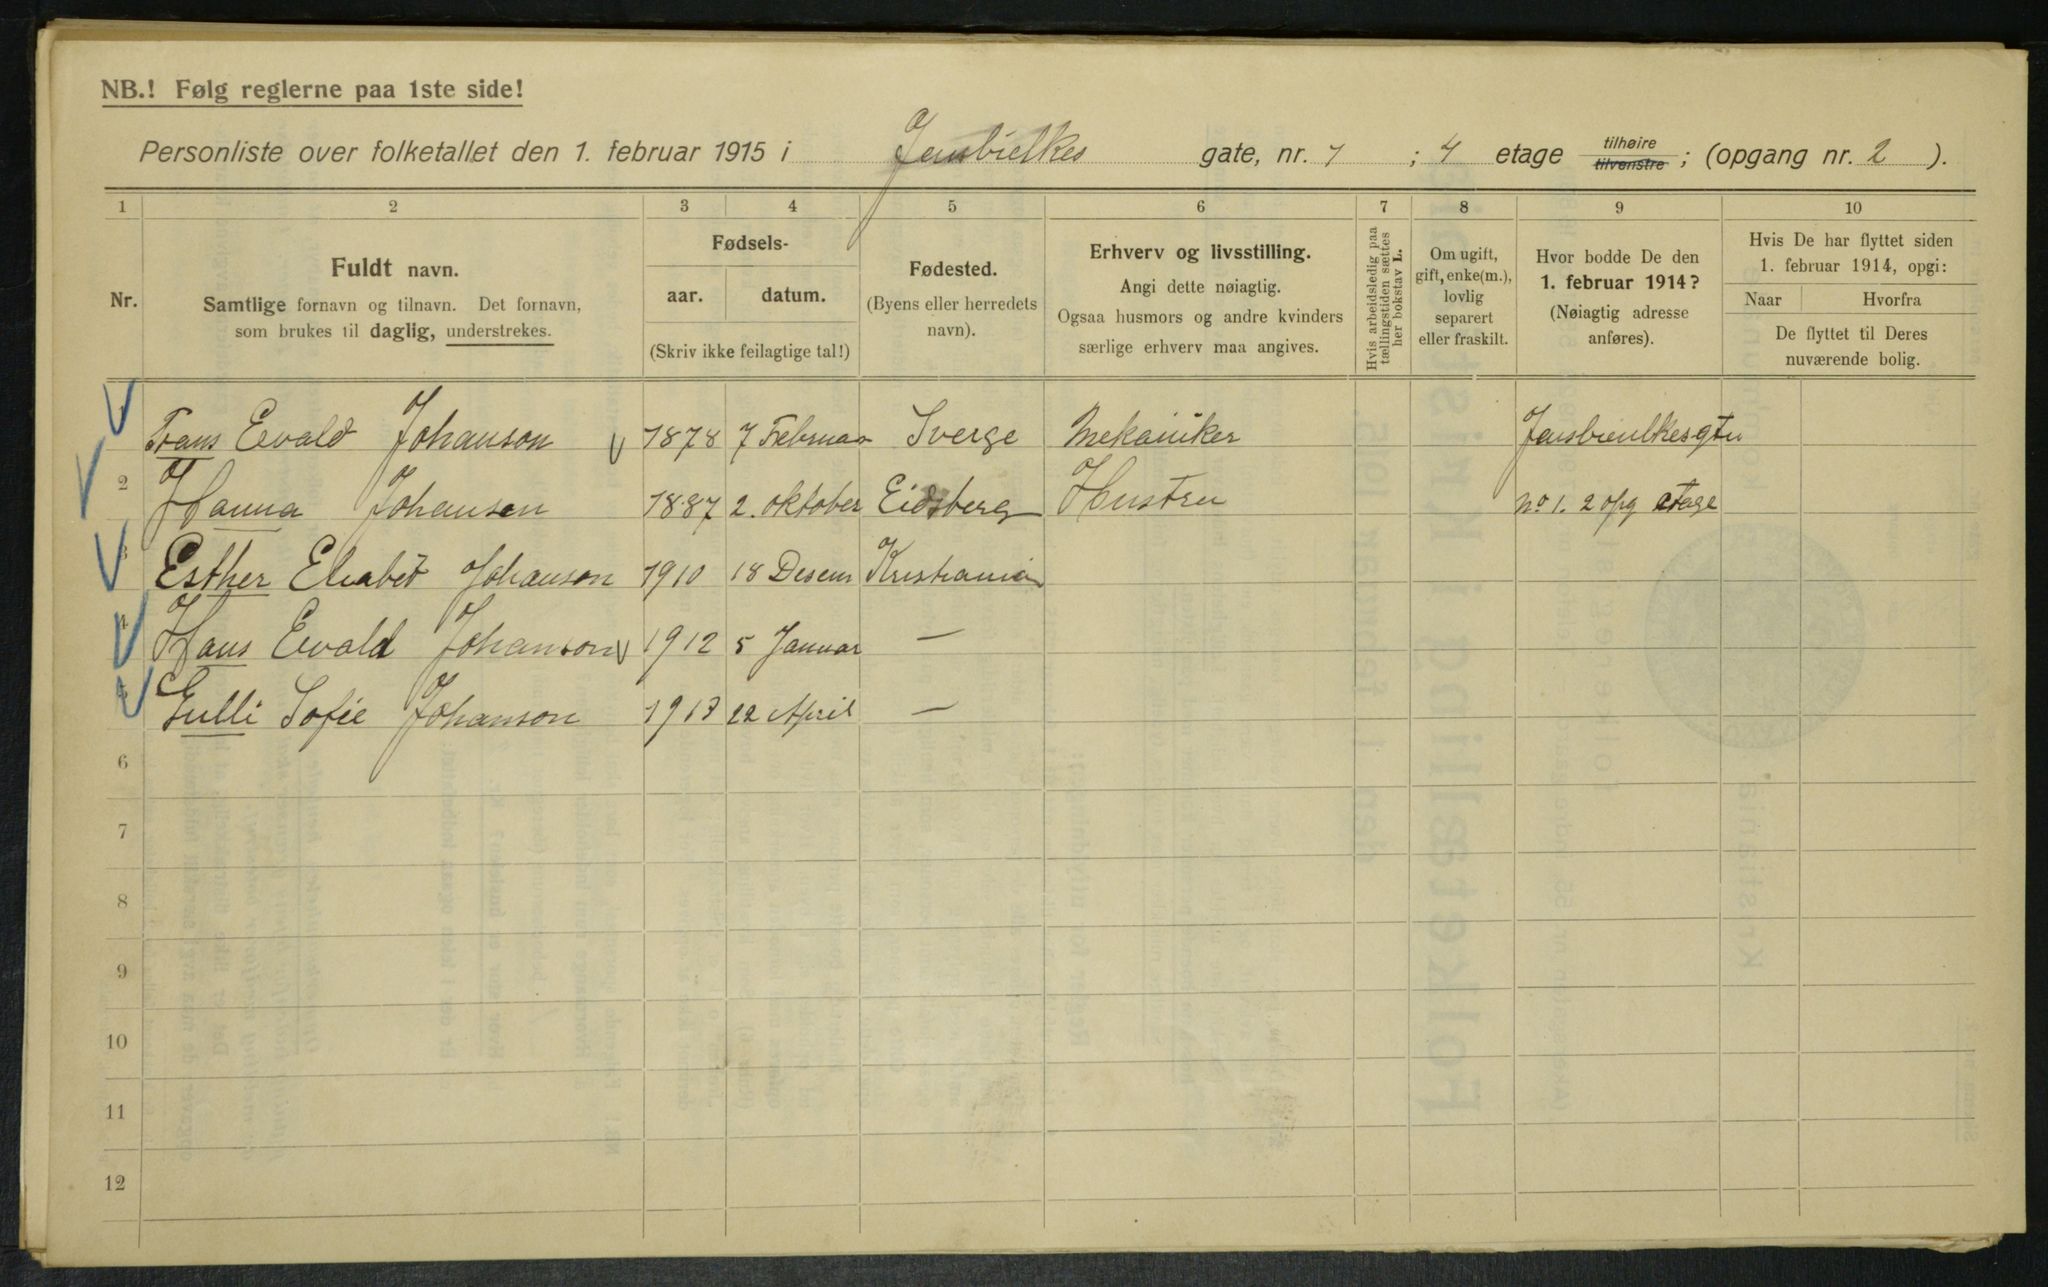 NB.! Følg reglerne paa 1ste side!
Personliste over folketallet den 1. februar 1915 i Jensbielkes gate, nr. 1 ; 4 etage tilhøire tilvenstre ; (opgang nr. 2 ).
1 2 3 4 5 6 7 8 9 10
Nr.
Fuldt navn.
Samtlige fornavn og tilnavn. Det fornavn,
som brukes til daglig, understrekes.
Fødsels-
aar. datum.
(Skriv ikke feilagtige tal!)
Fødested.
(Byens eller herredets
navn).
Erhverv og livsstilling.
Angi dette nøiagtig.
Ogsaa husmors og andre kvinders
særlige erhverv maa angives.
Hvis arbeidsledig paa
tællingstiden sættes
her bokstav L.
Om ugift,
gift, enke(m.),
lovlig
separert
eller fraskilt.
Hvor bodde De den
1. februar 1914?
(Nøiagtig adresse
anføres).
Hvis De har flyttet siden
1. februar 1914, opgi:
Naar Hvorfra
De flyttet til Deres
nuværende bolig.
1 Frans Ewald Johanson 1878 7 Februar Sverge Mekaniker Jensbieulkesgtn
2 Hanna Johanson 1887 2. oktober Eidsberg Hustru no 1. 2 opg etage
3 Esther Elisabet Johanson 1910 18 Desem Kristiania
4 Hans Ewald Johanson 1912 5 Januar —
5 Gulli Sofie Johanson 1913 22 April —
6
7
8
9
10
11
12